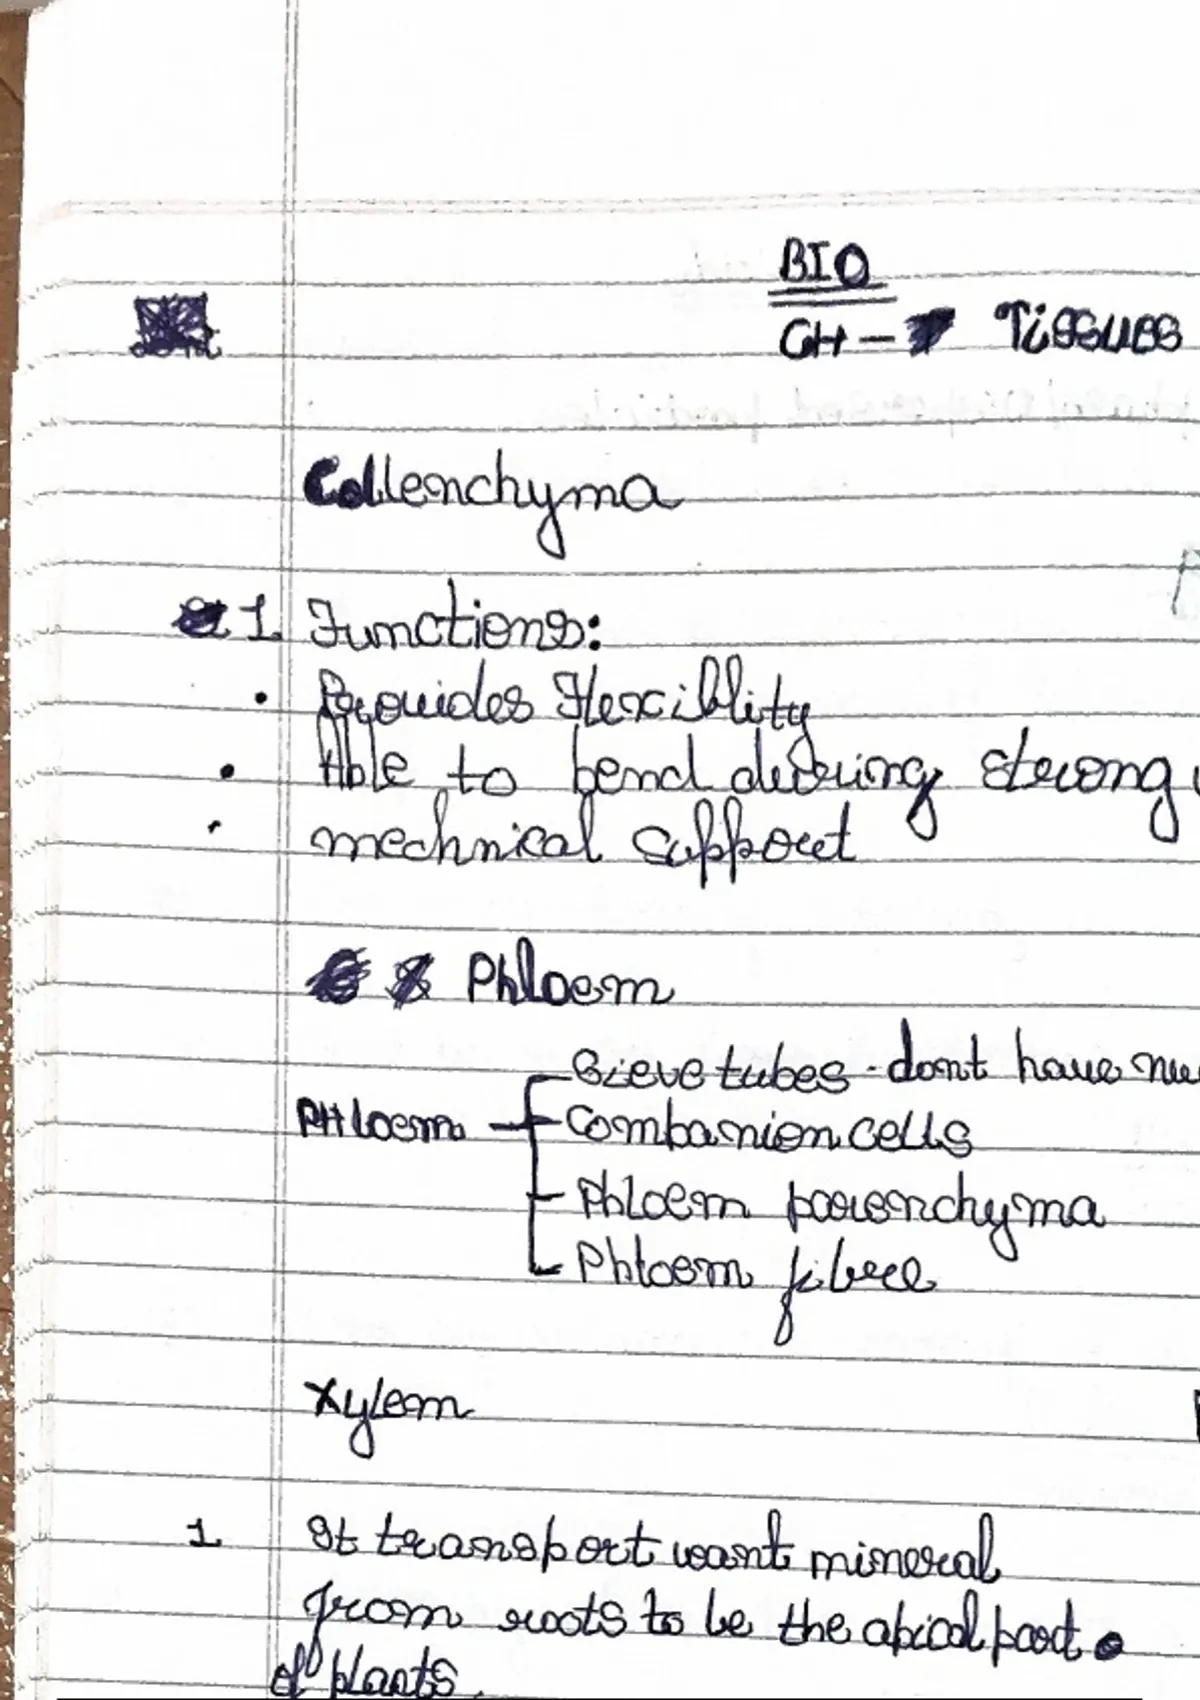 BIO
CH - Tissues
Collenchyma
1. Functions:
• Provides Flexiblity
• Able to bend during strong
• mechnical support
Phloem
Sieve tubes - dont have
PHloem
Companion cells
Phloem parenchyma
Phloem fibre
Xylem
1 It transport want mineral
from roots to be the apical part
of plants.